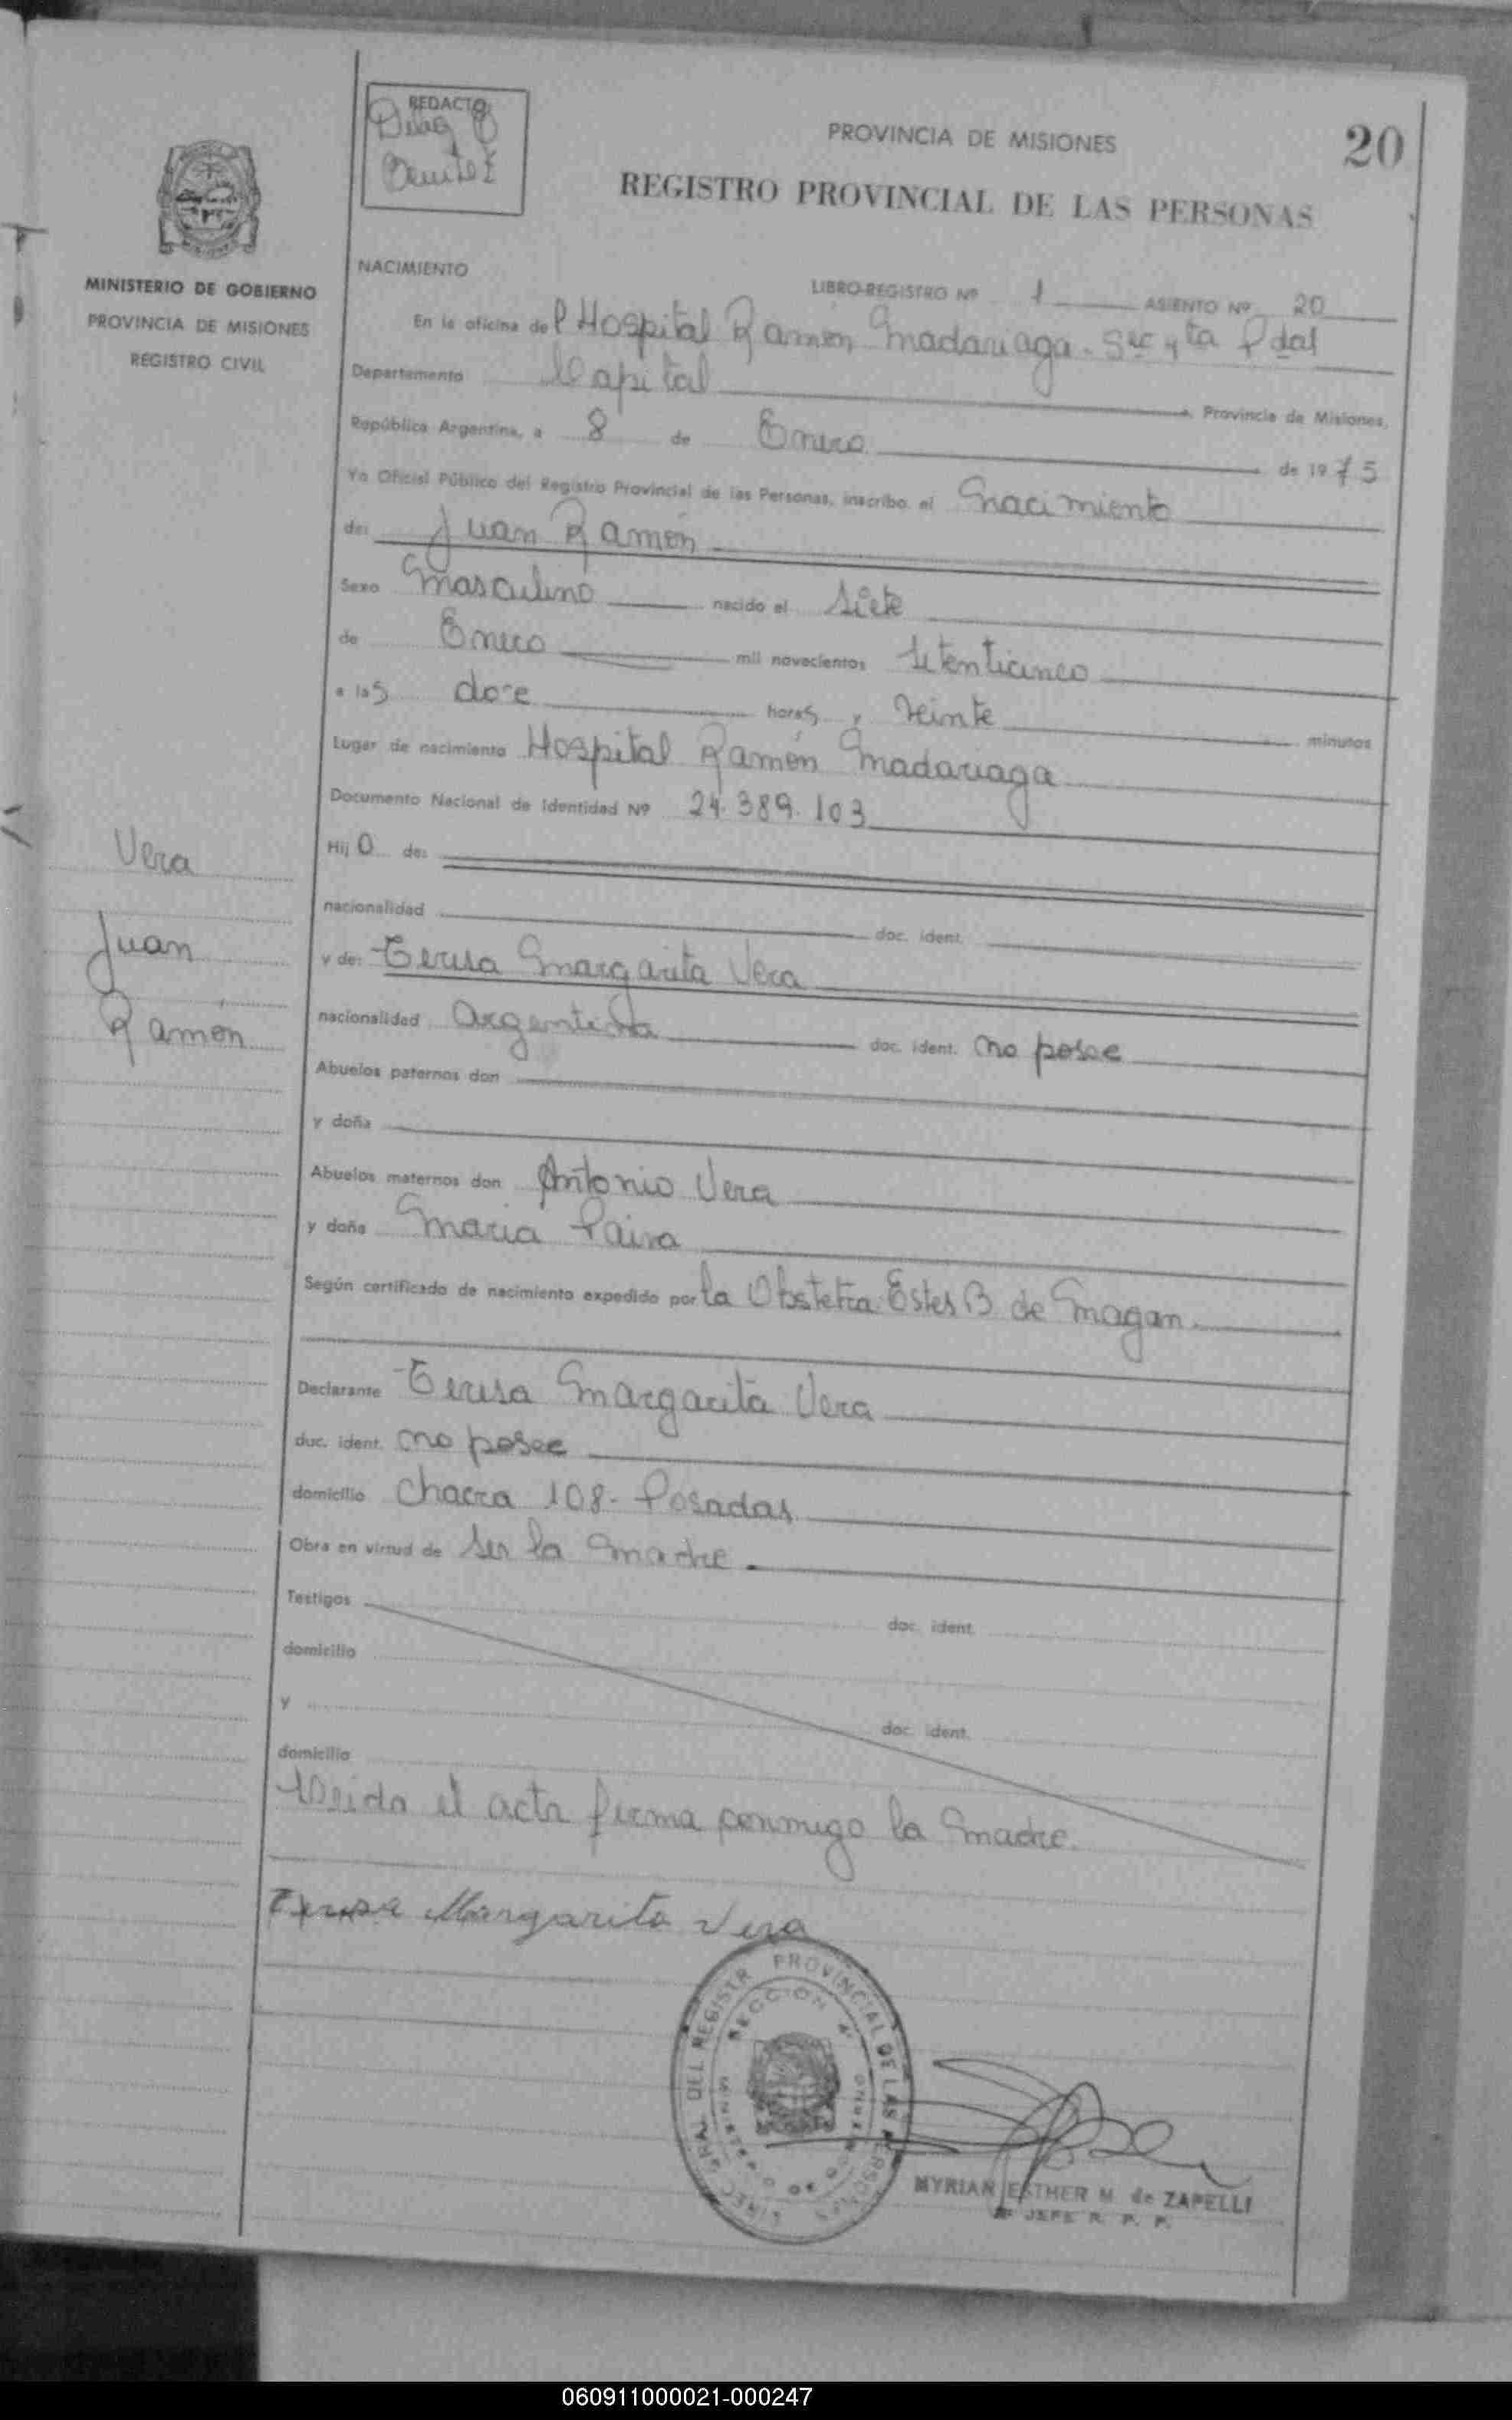 REDACTO
Benitez
PROVINCIA DE MISIONES
20
REGISTRO PROVINCIAL DE LAS PERSONAS
MINISTERIO DE GOBIERNO
PROVINCIA DE MISIONES
REGISTRO CIVIL
NACIMIENTO
LIBRO-REGISTRO Nº 1 ASIENTO Nº 20
En la oficina del Hospital Ramón Madariaga - Sec 4ta Pdas
Departamento Capital Provincia de Misiones,
República Argentina, a 8 de Enero de 1975
Yo Oficial Público del Registro Provincial de las Personas, inscribo el Nacimiento
de: Juan Ramón
Sexo Masculino nacido el siete
de Enero mil novecientos setenticinco
a las doce horas y veinte minutos
Lugar de nacimiento Hospital Ramón Madariaga
Documento Nacional de Identidad Nº 24.389.103
Hijo de:
nacionalidad doc. ident.
y de: Teresa Margarita Vera
nacionalidad Argentina doc. ident. no posee
Abuelos paternos don
y doña
Abuelos maternos don Antonio Vera
y doña Maria Paiva
Según certificado de nacimiento expedido por la Obstetra Ester B de Magan.
Declarante Teresa Margarita Vera
doc. ident. no posee
domicilio Chacra 108 - Posadas
Obra en virtud de ser la madre.
Testigos doc. ident.
domicilio
y doc. ident.
domicilio
Leida el acta firma conmigo la madre.
Teresa Margarita Vera
Vera
Juan
Ramón
DIREC. GRAL. DEL REGISTR. PROVINCIAL DE LAS PERSONAS
SECCION 4ª
MYRIAN ESTHER M. de ZAPELLI
JEFE R. P. P.
060911000021-000247